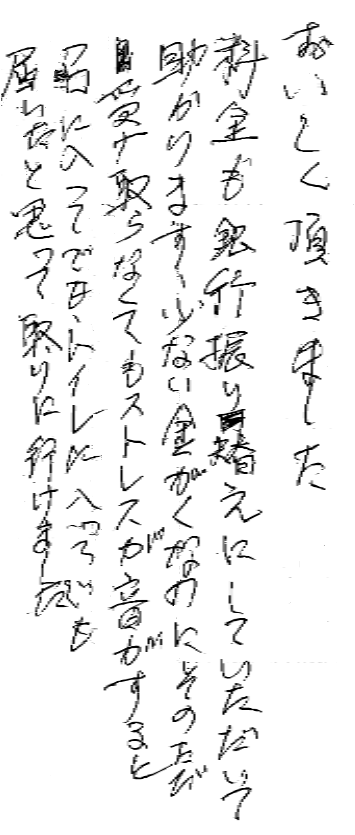 おいしく頂きました
料金も銀行振り替えにしていただいて
助かります、少ない金がくなのにそのたび
受け取らなくてもストレスが音がすると
に入ってでも、トイレに入ってでも
届いたと思って取りに行けました